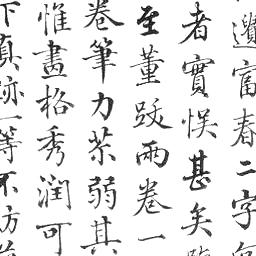 富春二字
者實悮甚矣
至董跋兩卷一
卷筆力苶弱其
惟畫格秀潤可
下真迹一等不妨